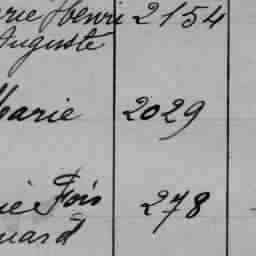 rie Henri 2154
Auguste
Marie 2029
ie Fois 278
uard